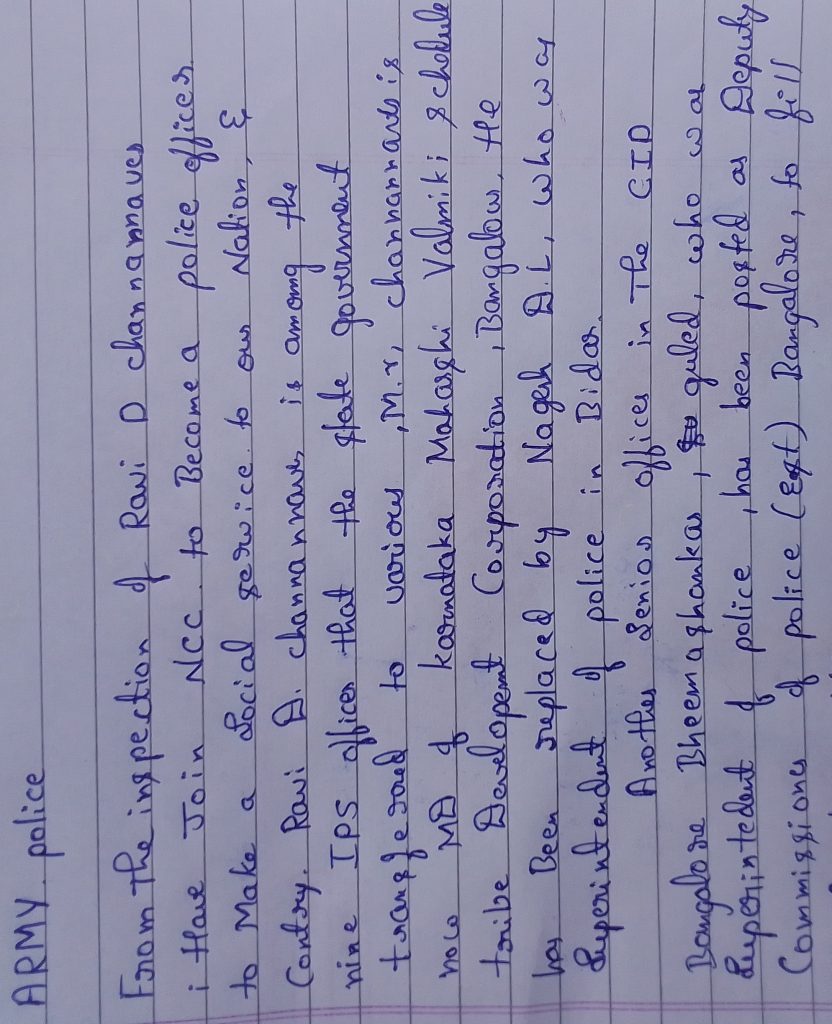 ARMY. police
From the inspection of Ravi D channannaves
i Have Join NCC. to Become a police officer
to Make a Social service. to our Nation, &
Contry. Ravi D. channannaves is among the
nine IPS officer that the state government
transfesred to various , M.r, channannards is
now MD of karnataka Maharshi Valmiki schedule
tribe Developemt Corporation , Bangalow, the
has Been replaced by Nagesh D.L, who was
Superintendent of police in Bidar.
Another Senior officer in The CID
Bangalore Bheemashankar, guled, who was
Superintedent of police , has been posted as Deputy
Commissioner of police (Eqt) Bangalore, to fill